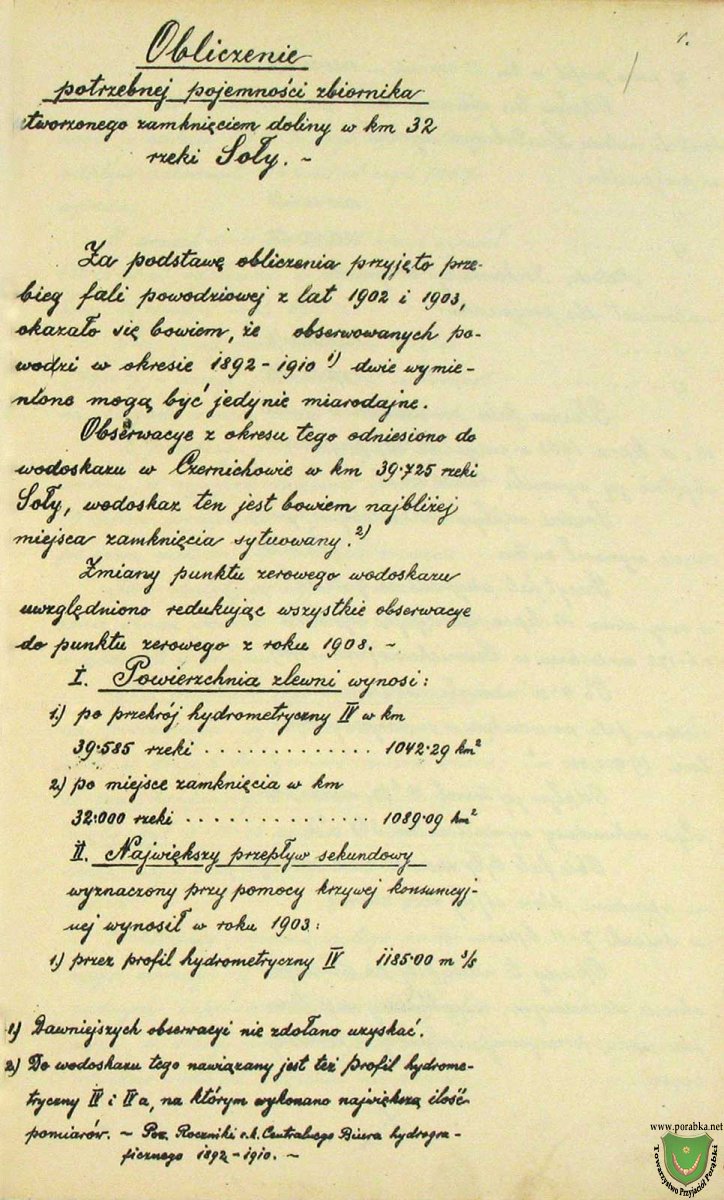 1.
Obliczenie
potrzebnej pojemności zbiornika
stworzonego zamknięciem doliny w km 32
rzeki Soły. ~
Za podstawę obliczenia przyjęto prze-
bieg fali powodziowej z lat 1902 i 1903,
okazało się bowiem, że obserwowanych po-
wodzi w okresie 1892-1910 1) dwie wymie-
nione mogą być jedynie miarodajne.
Obserwacye z okresu tego odniesiono do
wodoskazu w Czernichowie w km 39·725 rzeki
Soły, wodoskaz ten jest bowiem najbliżej
miejsca zamknięcia sytuowany. 2)
Zmiany punktu zerowego wodoskazu
uwzględniono redukując wszystkie obserwacye
do punktu zerowego z roku 1908. ~
I. Powierzchnia zlewni wynosi:
1.) po przekrój hydrometryczny IV w km
39·585 rzeki . . . . . . . . . . . . . 1042·29 km²
2.) po miejsce zamknięcia w km
32·000 rzeki . . . . . . . . . . . . . . 1089·09 km²
II. Największy przepływ sekundowy
wyznaczony przy pomocy krzywej konsumcyj-
nej wynosił w roku 1903:
1.) przez profil hydrometryczny IV 1185·00 m³/s
1.) Dawniejszych obserwacyi nie zdołano uzyskać.
2.) Do wodoskazu tego nawiązany jest też profil hydrome-
tryczny IV i IVa, na którym wykonano największą ilość
pomiarów. ~ Poz. Roczniki c.k. Centralnego Biura hydrogra-
ficznego 1892-1910. ~
www.porabka.net
Towarzystwo Przyjaciół Porąbki